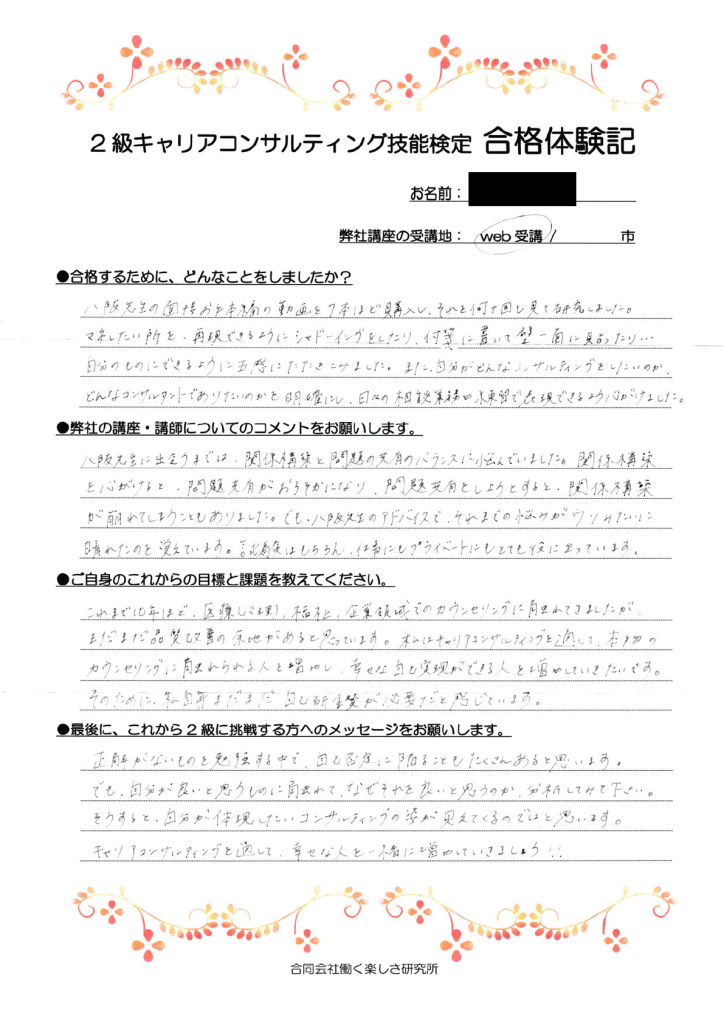 2級キャリアコンサルティング技能検定 合格体験記
お名前：
弊社講座の受講地： web受講 / 市
●合格するために、どんなことをしましたか？
八阪先生の面接お手本編の動画を7本ほど購入し、それを何十回も見て研究しました。
マネしたい所を、再現できるようにシャドーイングをしたり、付箋に書いて壁一面に貼ったり…
自分のものにできるように五感にたたきこみました。また、自分がどんなコンサルティングをしたいのか、
どんなコンサルタントでありたいのかを明確にし、日々の相談業務や練習で表現できるよう心がけました。
●弊社の講座・講師についてのコメントをお願いします。
八阪先生に出会うまでは、関係構築と問題の共有のバランスに悩んでいました。関係構築
を心がけると、問題共有がおろそかになり、問題共有をしようとすると、関係構築
が崩れてしまうこともありました。でも、八阪先生のアドバイスで、それまでの悩みがウソみたいに
晴れたのを覚えています。試験はもちろん、仕事にもプライベートにもとても役に立っています。
●ご自身のこれからの目標と課題を教えてください。
これまで10年ほど、医療(心理)、福祉、企業領域でのカウンセリングに触れてきましたが、
まだまだ品質改善の余地があると思っています。私はキャリアコンサルティングを通して、本物の
カウンセリングに触れられる人を増やし、幸せな自己実現ができる人を増やしていきたいです。
そのために、私自身まだまだ自己研鑽が必要だと感じています。
●最後に、これから2級に挑戦する方へのメッセージをお願いします。
正解がないものを勉強する中で、自己否定に陥ることもたくさんあると思います。
でも、自分が良いと思うものに触れて、なぜそれを良いと思うのか、分析してみて下さい。
そうすると、自分が体現したいコンサルティングの姿が見えてくるのではと思います。
キャリアコンサルティングを通して、幸せな人を一緒に増やしていきましょう！！
合同会社働く楽しさ研究所